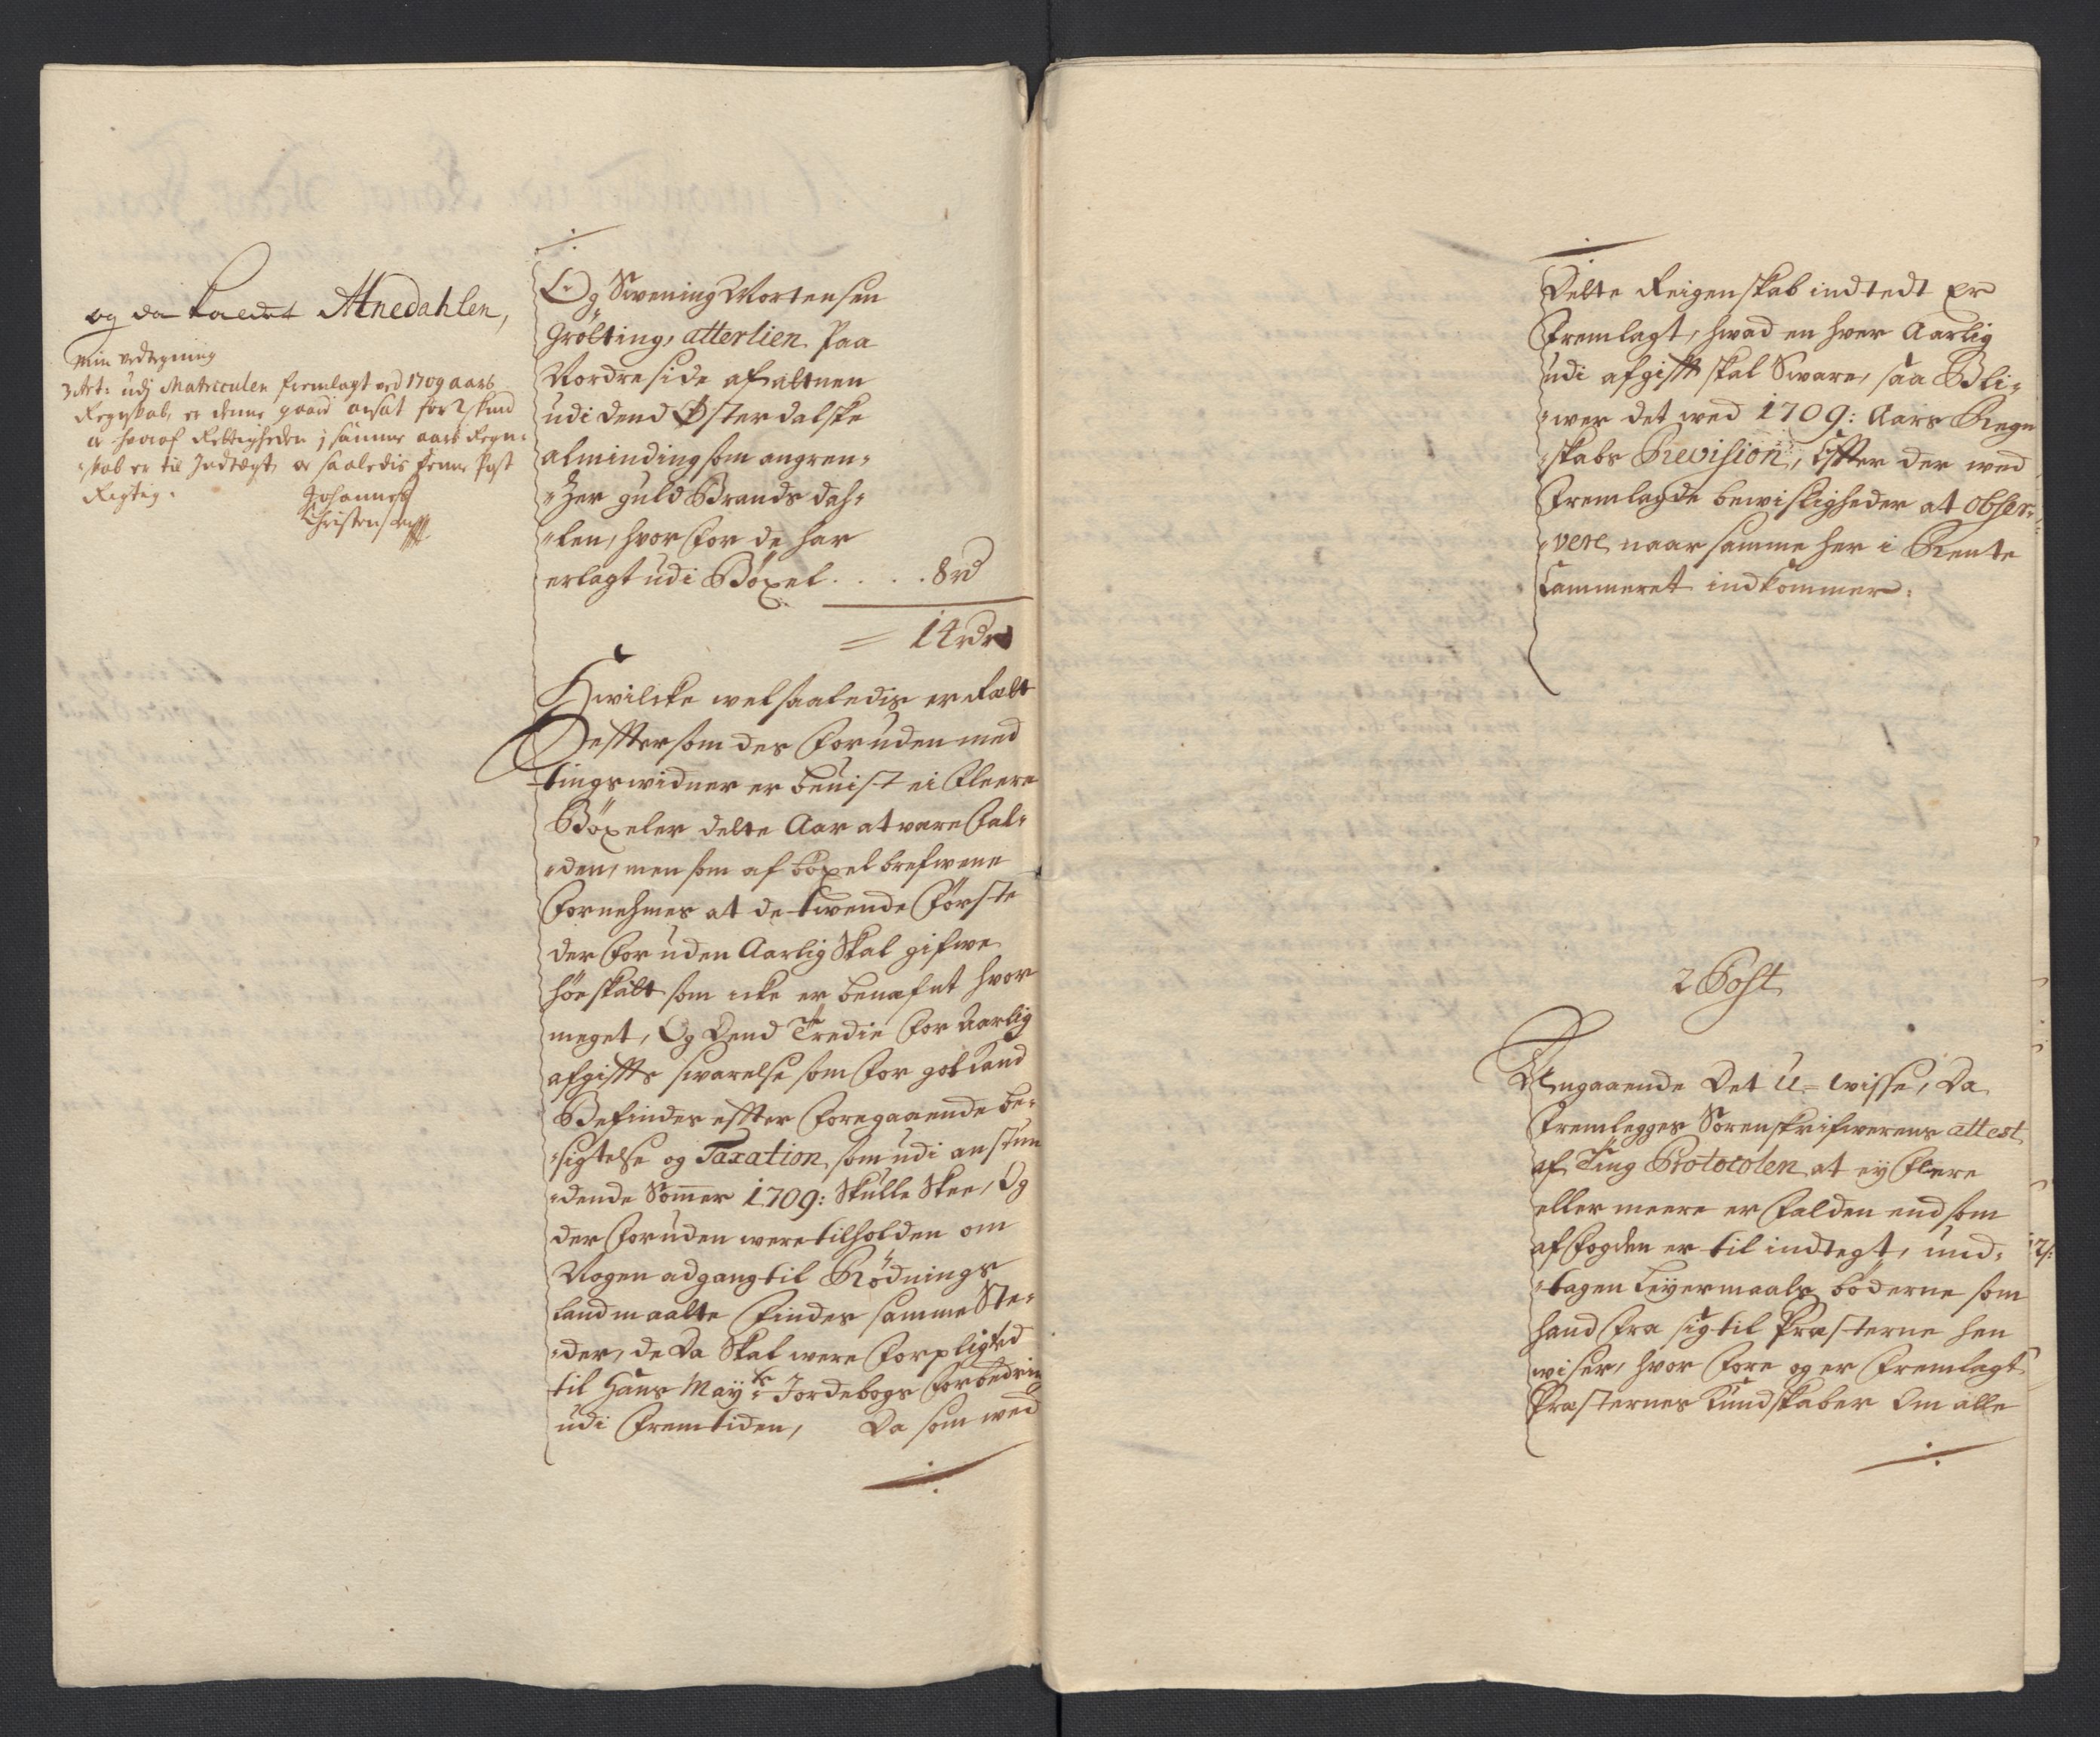 og da kaldet Atnedahlen,
min vedtegning
3 Art: udj Matriculen fremlagt ved 1709 aars
Regnskab, er denne gaard ansat for 2 skind
hvoraf Rettigheden j samme aars Regn:
:skab er til Indtægt, saaledis denne Post
Rigtig.
Johannes
Christensen
Og Swening Mortensen
Grötting, atterlien Paa
Nordre side af altnen
udi dend Østerdalske
alminding som angren:
:zer guldBrands dah:
:len, hvor for de har
erlagt udi Böxel . . . . . 8 rd
= 14 rdr
Hwilcke wel saaledis er
efftersom des foruden med
tingswidner er beuist ei fleere
Böxeler dette Aar at være fal:
:den, men som af böxel brefwene
fornehmes at de twende förste
der foruden Aarlig skal gifwe
som icke er benefnt hvor
meget, Og Dend Tredie for Aarlig
afgiffts swarelse som for got
Befindes effter foregaaende be:
:sigtelse og Taxation, som udi anstun
:dende Sommer 1709: skulle skee, Og
der foruden were tilholden om
Nogen adgang til Rödnings
land maatte findes samme Ste:
:der, de Da skal were forpligted
til Hans May:ts Jordebogs forbedring
udi fremtiden, Da som wed
Dette Reigenskab indtedt Er
fremlagt, hwad en hver Aarlig
udi afgifft skal Sware, saa Bli:
:wer det wed 1709: Aars Regn
:skabs Revision, Effter der wed
fremlagde bewisligheder at obser:
:vere, naar samme her i Rente
Cammeret indkommer.
2 Post
Angaaende Det U=wisse, Da
fremlegges Sorenskrifwerens attest
af Ting Protocolen at ey flere
eller meere er falden end som
af fogden er til indtegt, und:
:tagen Leyermaals böderne som
hand fra sig til Præsterne hen
wiser, hvor fore og er fremlagt
Præsternes Kundskaber Om alle